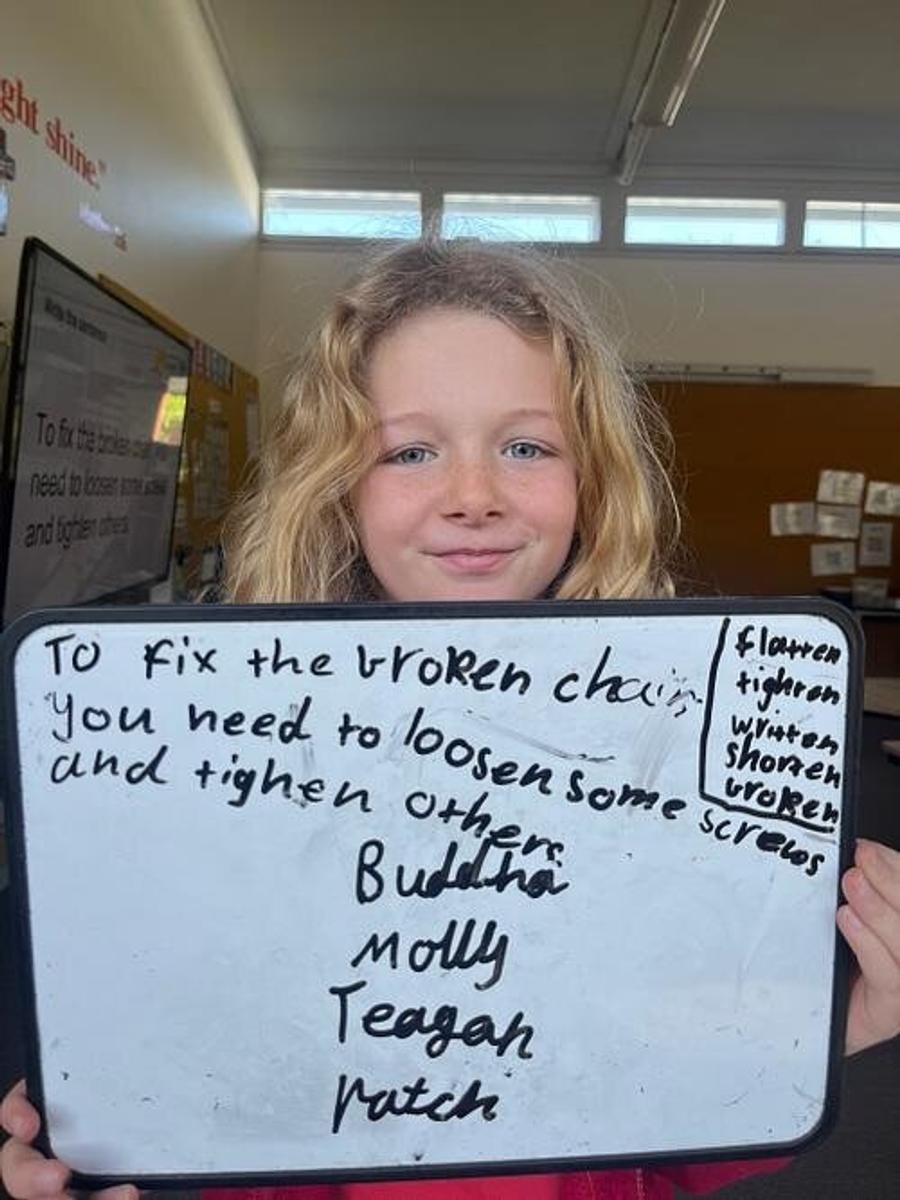 ght shine."
Write the sentence
To fix the broken chair
need to loosen some screws
and tighten others.
To fix the broken chair,
you need to loosen some screws
and tighen others
flatten
tighten
written
shorten
broken
Buddha
Molly
Teagan
Patch